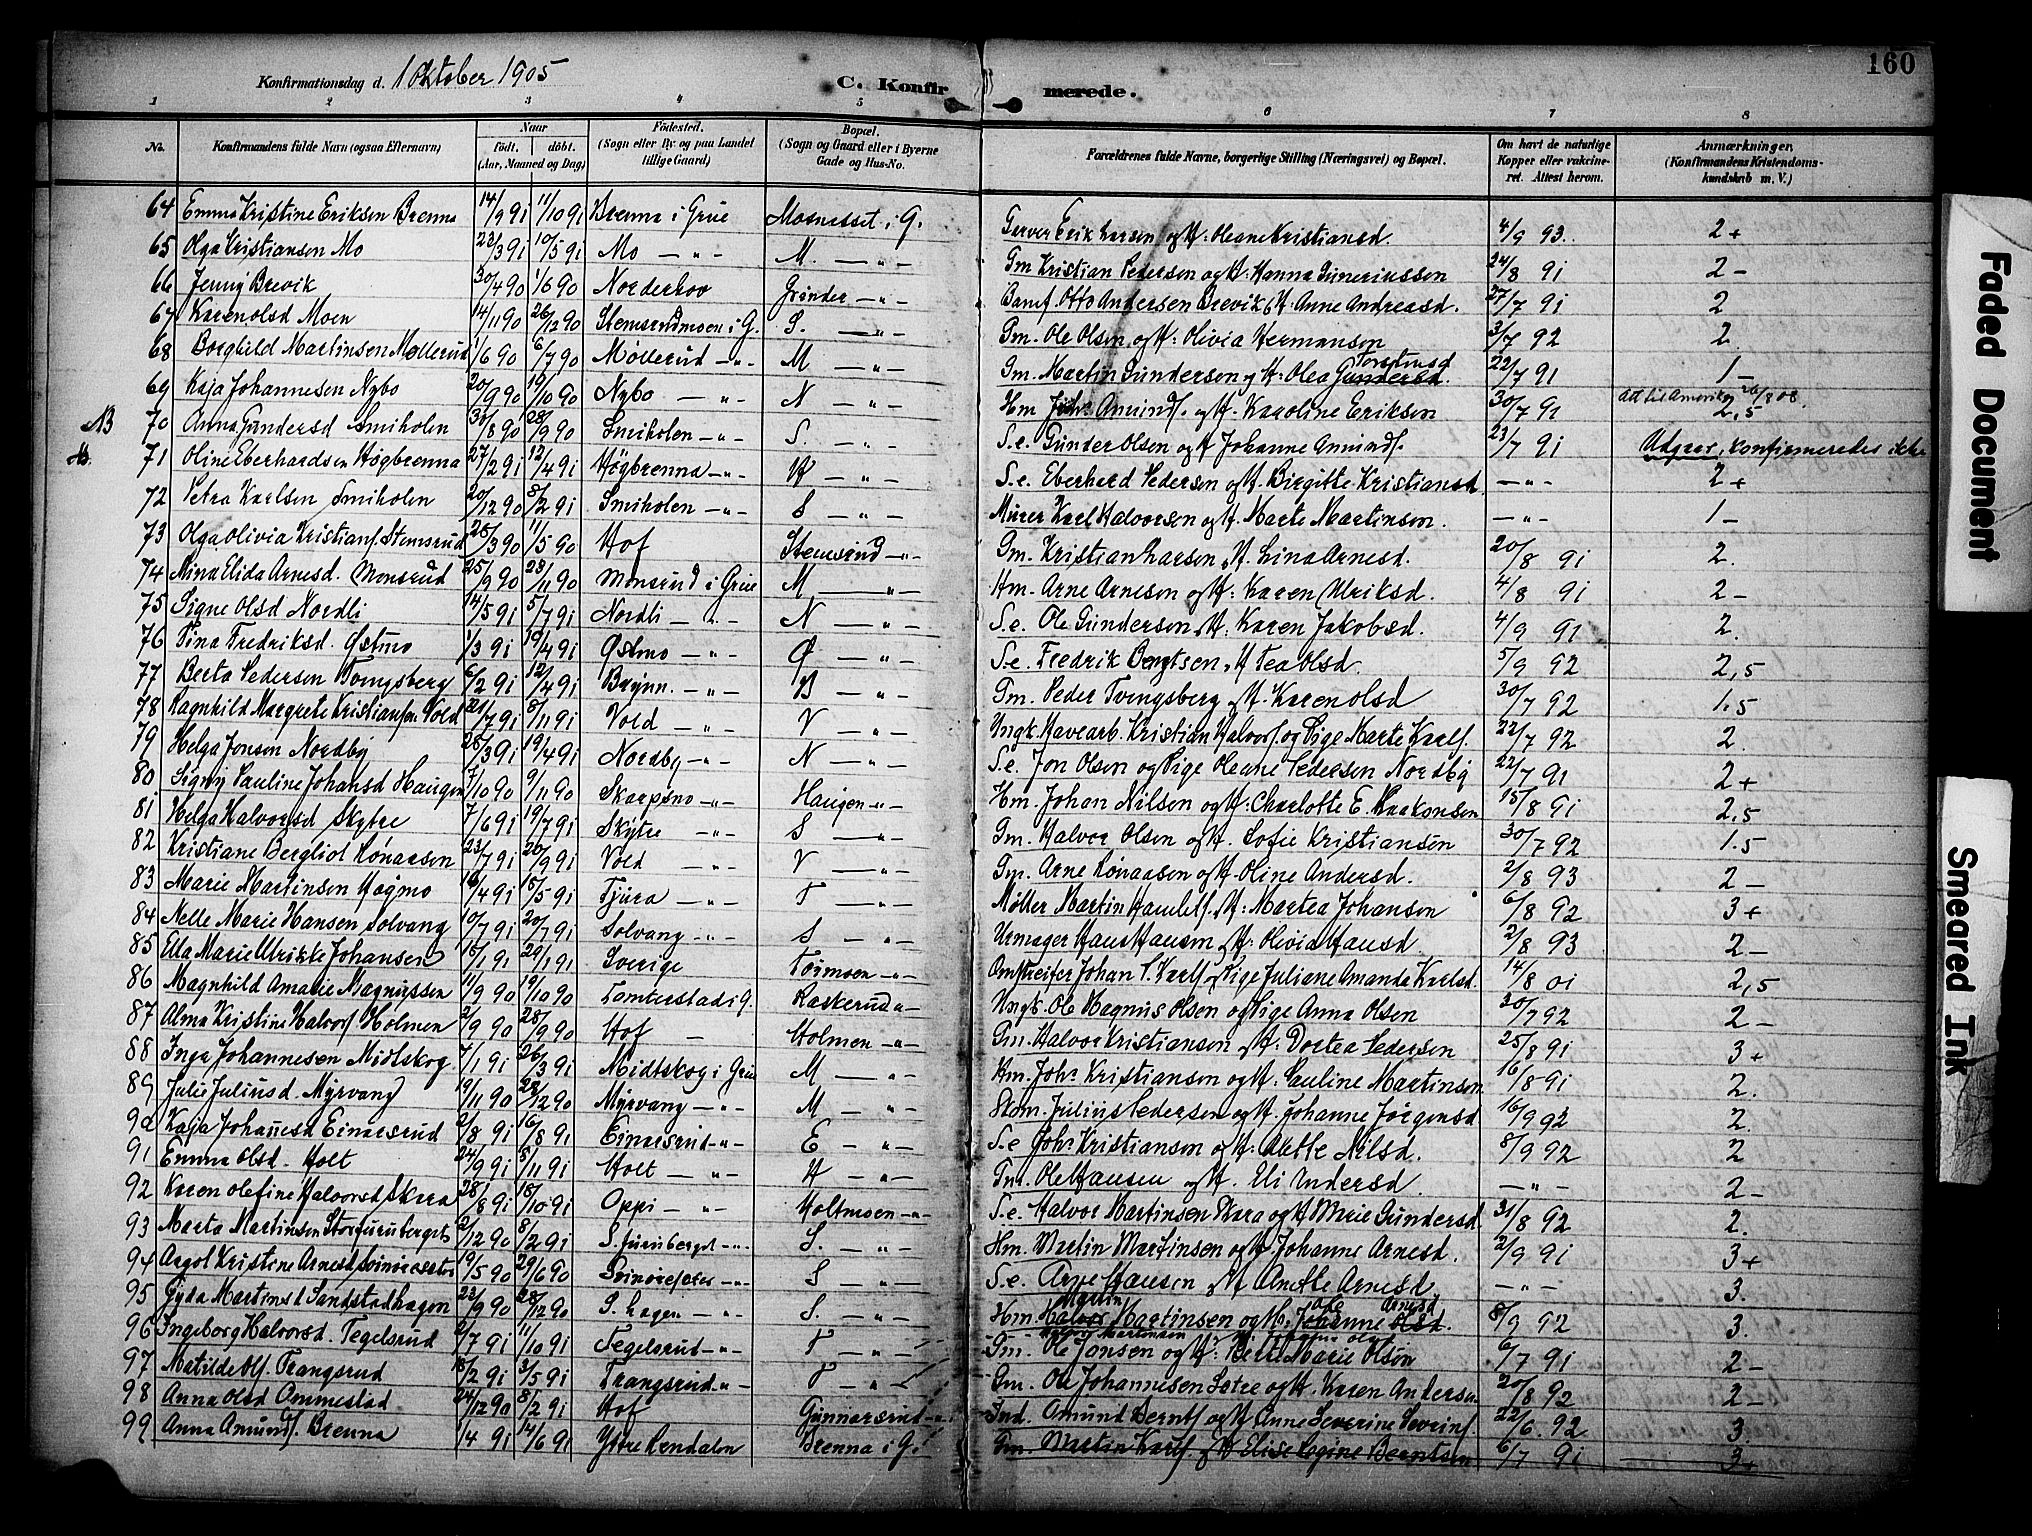 160
Konfirmationsdag d. 1 Oktober 1905
C. Konfirmerede.
1 2 3 4 5 6 7 8
No. Konfirmandens fulde Navn (ogsaa Efternavn) Naar födt. döbt. (Aar, Maaned og Dag) Födested. (Sogn eller By og paa Landet tillige Gaard) Bopæl. (Sogn og Gaard eller i Byerne Gade og Hus-No. Forældrenes fulde Navne, borgerlige Stilling (Næringsvei) og Bopæl. Om havt de naturlige Kopper eller vaccineret. Attest herom. Anmærkninger. (Konfirmandens Kristendomskundskab m. V.)
64 Emma Kristine Eriksen Brenna 14/9 91 11/10 91 Brenna i Grue Mosnesset i G. Erik Larsen og H: Oleane Kristiansd. 4/9 93. 2+
65 Olga Kristiansen Mo 23/3 91 10/5 91 Mo — " — M. — " — Gm Kristian Pedersen og H: Hanna Guneriussen 24/8 91 2-
66 Jenny Brevik 30/4 90 1/6 90 Norderhov Grinder — " — Otto Andersen Brevik H. Anne Andreasd. 27/7 91 2
67 Karen Olsd Moen 14/11 90 26/12 90 Stemsrudmoen i G. S. — " — Gm. Ole Olsen og H: Olivia Hermansen 3/7 92 2.
68 Borghild Martinsen Møllerud 1/6 90 6/7 90 Møllerud — " — M — " — Gm. Martin Gundersen og H. Olea Gundersd. Torstensd 22/7 91 1-
69 Kaja Johannesen Nybo 20/9 90 19/10 90 Nybo — " — N — " — Hm Johs. Amundf. og H. Karoline Eriksen 30/7 91 Att til Amerika 26/8 08. 2,5
NB 70 Anna Gundersd Smiholen 30/8 90 28/9 90 Smiholen — " — S. — " — S.e. Gunder Olsen og H Johanne Amundf. 23/7 91 Udgaar, konfirmeredes ikke
71 Oline Eberhardsen Høgbrenna 27/2 91 12/4 91 Høgbrenna — " — H — " — S.e. Eberhard Pedersen og H. Birgitte Kristiansd. — " — 2+
72 Petra Karlsen Smiholen 20/12 90 8/2 91 Smiholen — " — S — " — Murer Karl Halvorsen og H. Marte Martinsen. — " — 1-
73 Olga Olivia Kristianf. Stemsrud 28/3 90 11/5 90 Hof Stemsrud — " — Gm. Kristian Larsen, H. Lina Arnesd. 20/8 91 2.
74 Mina Elida Arnesd. Monsrud 25/9 90 23/11 90 Monsrud i Grue M — " — Hm. Arne Arnesen og H: Karen Ulriksd. 4/8 91 2-
75 Signe Olsd Nordli 14/5 91 5/7 91 Nordli — " — N — " — S.e. Ole Gundersen, H. Karen Jakobsd. 4/9 91 2.
76 Tina Fredriksd. Østmo 1/3 91 19/4 91 Østmo — " — Ø — " — S.e. Fredrik Bergtsen, H Tea Olsd. 5/9 92 2,5
77 Berta Pedersen Tvengsberg 6/2 91 12/4 91 Brynn. — " — B — " — Gm. Peder Tvengsberg og H. Karen Olsd 30/7 92 1.5
78 Ragnhild Margrete Kristiansen Vold 21/7 91 8/11 91 Vold — " — V — " — Ungk. Havearb. Kristian Halvorf. og Pige Marte Karlf. 22/7 92 2.
79 Helga Jonsen Nordby 28/3 91 19/4 91 Nordby — " — N — " — S.e. Jon Olsen og Pige Oleane Pedersen Nordby 22/7 91 2+
80 Signy Pauline Johansd Haugen 7/10 90 9/11 90 Skarpsno — " — Haugen — " — Hm. Johan Nilsen og H: Charlotte E. Haakonsen 15/8 91 2,5
81 Helga Halvorsd Skytre 7/6 91 19/7 91 Skytre — " — S — " — Gm. Halvor Olsen og H. Sofie Kristiansen 30/7 92 1.5
82 Kristiane Bergliot Lønaasen 23/7 91 20/9 91 Vold — " — V — " — Gm. Arne Lønaasen og H. Oline Andersd. 2/8 93 2-
83 Marie Martinsen Høgmo 16/4 91 15/5 91 Tjura — " — T — " — Møller Martin H. Martea Johansen 6/8 92 3+
84 Nelle Marie Hansen Solvang 10/7 91 20/7 91 Solvang — " — S — " — Urmager Hans Hansen og H: Olivia Hansd 2/8 93 2-
85 Ella Marie Ulrikke Johansen 18/1 91 29/1 91 Sverige Tørmoen — " — Johan Karlf. Pige Juliane Amanda Karlsd. 14/8 01 2,5
86 Magnhild Amalie Magnussen 11/9 90 19/10 90 Tomterstad i G. Raskerud — " — Ungk. Ole Magnus Olsen og Pige Anna Olsen 30/7 92 2-
87 Alma Kristine Halvorf Holmen 2/9 90 28/9 90 Hof — Holmen — " — Gm. Halvor Kristiansen og H: Dortea Pedersen 25/8 91 3+
88 Inga Johannesen Midtskog. 7/1 91 26/3 91 Midtskog i Grue M — " — Hm. Johs. Kristiansen og H. Pauline Martinsen 16/8 91 2.
89 Julie Juliusd. Myrvang 19/11 90 28/12 90 Myrvang — " — M — " — Julius Pedersen og H. Johanne Jørgensd 16/9 92 2.
90 Kaja Johannesd Einarsrud 2/8 91 16/8 91 Einarsrud — " — E — " — S.e Johs. Kristiansen og H: Mette Nilsd. 8/9 92 2
91 Emma Olsd. Holt 24/9 91 8/11 91 Holt — " — H — " — Gm. Ole Hansen og H. Eli Andersd. — " — 2-
92 Karen Olefine Halvorsd Skara 28/8 91 18/10 91 Oppi — " — Holtmoen — " — S.e. Halvor Martinsen Skara og H Marie Gundersd 31/8 92 2.
93 Marta Martinsen Storfuruberget 2/12 90 8/2 91 S. furuberget — " — S. — " — Hm. Martin Martinsen og H. Johanne Arnesd. 2/9 91 3+
94 Kristine Arnesd 19/5 90 29/6 90 — " — S — " — S.e. Arne Hansen og H Anette Arnesd. — " — 3.
95 Gyda Martinsd Sandstadhagen 23/9 90 28/12 90 S. hagen — " — S. — " — Hm. Halvor Martin Martinsen og H: Johanne Olsd. Arnesd 8/9 92 3.
96 Ingeborg Halvorsd. Tegelsrud 2/7 91 11/10 91 Tegelsrud — " — T — " — Gm. Ole Jonsen og H: Berte Marie Olsen 6/7 91 2-
97 Matilde Olf. Trangsrud 18/2 91 3/5 91 Trangsrud — " — T — " — Gm. Ole Johannesen Sætre og H. Karen Andersen 20/8 92 2-
98 Anna Olsd Ommestad 24/12 90 8/2 91 Hof Gunnarsrud — " — Ind. Amund Berntf. og H Anne Severine Severinf. 22/6 92 3
99 Anna Amundf. Brenna 1/4 91 14/6 91 Ytre Rendalen Brenna i G. Gm. Martin Karlf. og H Elise Regine Berntsen 6/7 91 3+
Faded Document
Smeared Ink